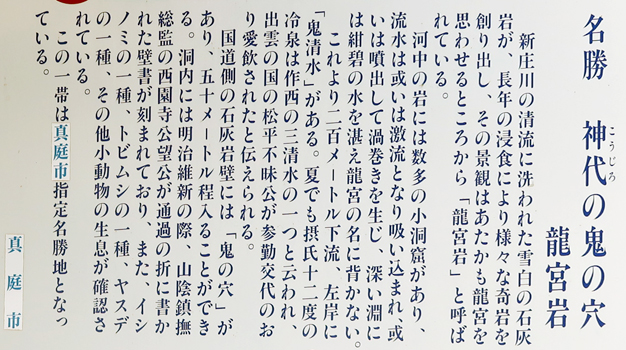 名勝 神代の鬼の穴
こうじろ
龍宮岩
新庄川の清流に洗われた雪白の石灰
岩が、長年の浸食により様々な奇岩を
創り出し、その景観はあたかも龍宮を
思わせるところから「龍宮岩」と呼ば
れている。
河中の岩には数多の小洞窟があり、
流水は或いは激流となり吸い込まれ、或
いは噴出して渦巻きを生じ、深い淵に
は紺碧の水を湛え龍宮の名に背かない。
これより二百メートル下流、左岸に
「鬼清水」がある。夏でも摂氏十二度の
冷泉は作西の三清水の一つと云われ、
出雲の国の松平不昧公が参勤交代のお
り愛飲されたと伝えられる。
国道側の石灰岩壁には「鬼の穴」が
あり、五十メートル程入ることができ
る。洞内には明治維新の際、山陰鎮撫
総監の西園寺公望公が通過の折に書か
れた壁書が刻まれており、また、イシ
ノミの一種、トビムシの一種、ヤスデ
の一種、その他小動物の生息が確認さ
れている。
この一帯は真庭市指定名勝地となっ
ている。
真庭市